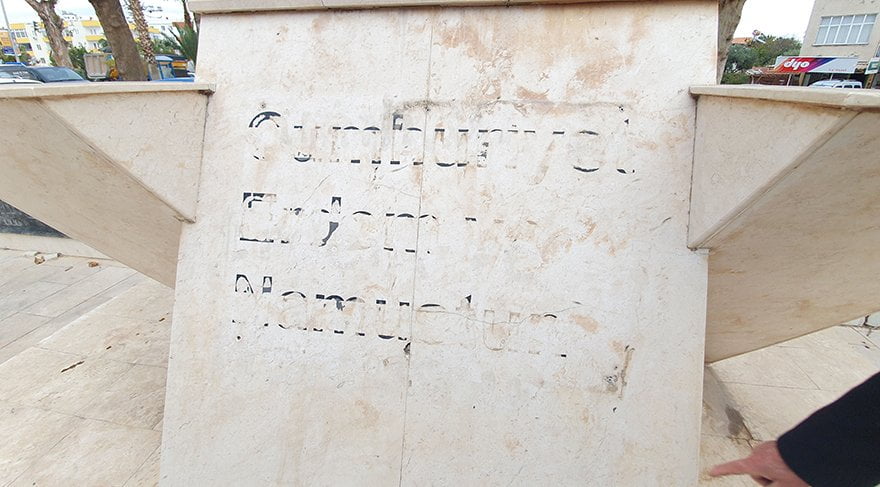 dyo
Cumhuriyet
Erdem ve
Namustur